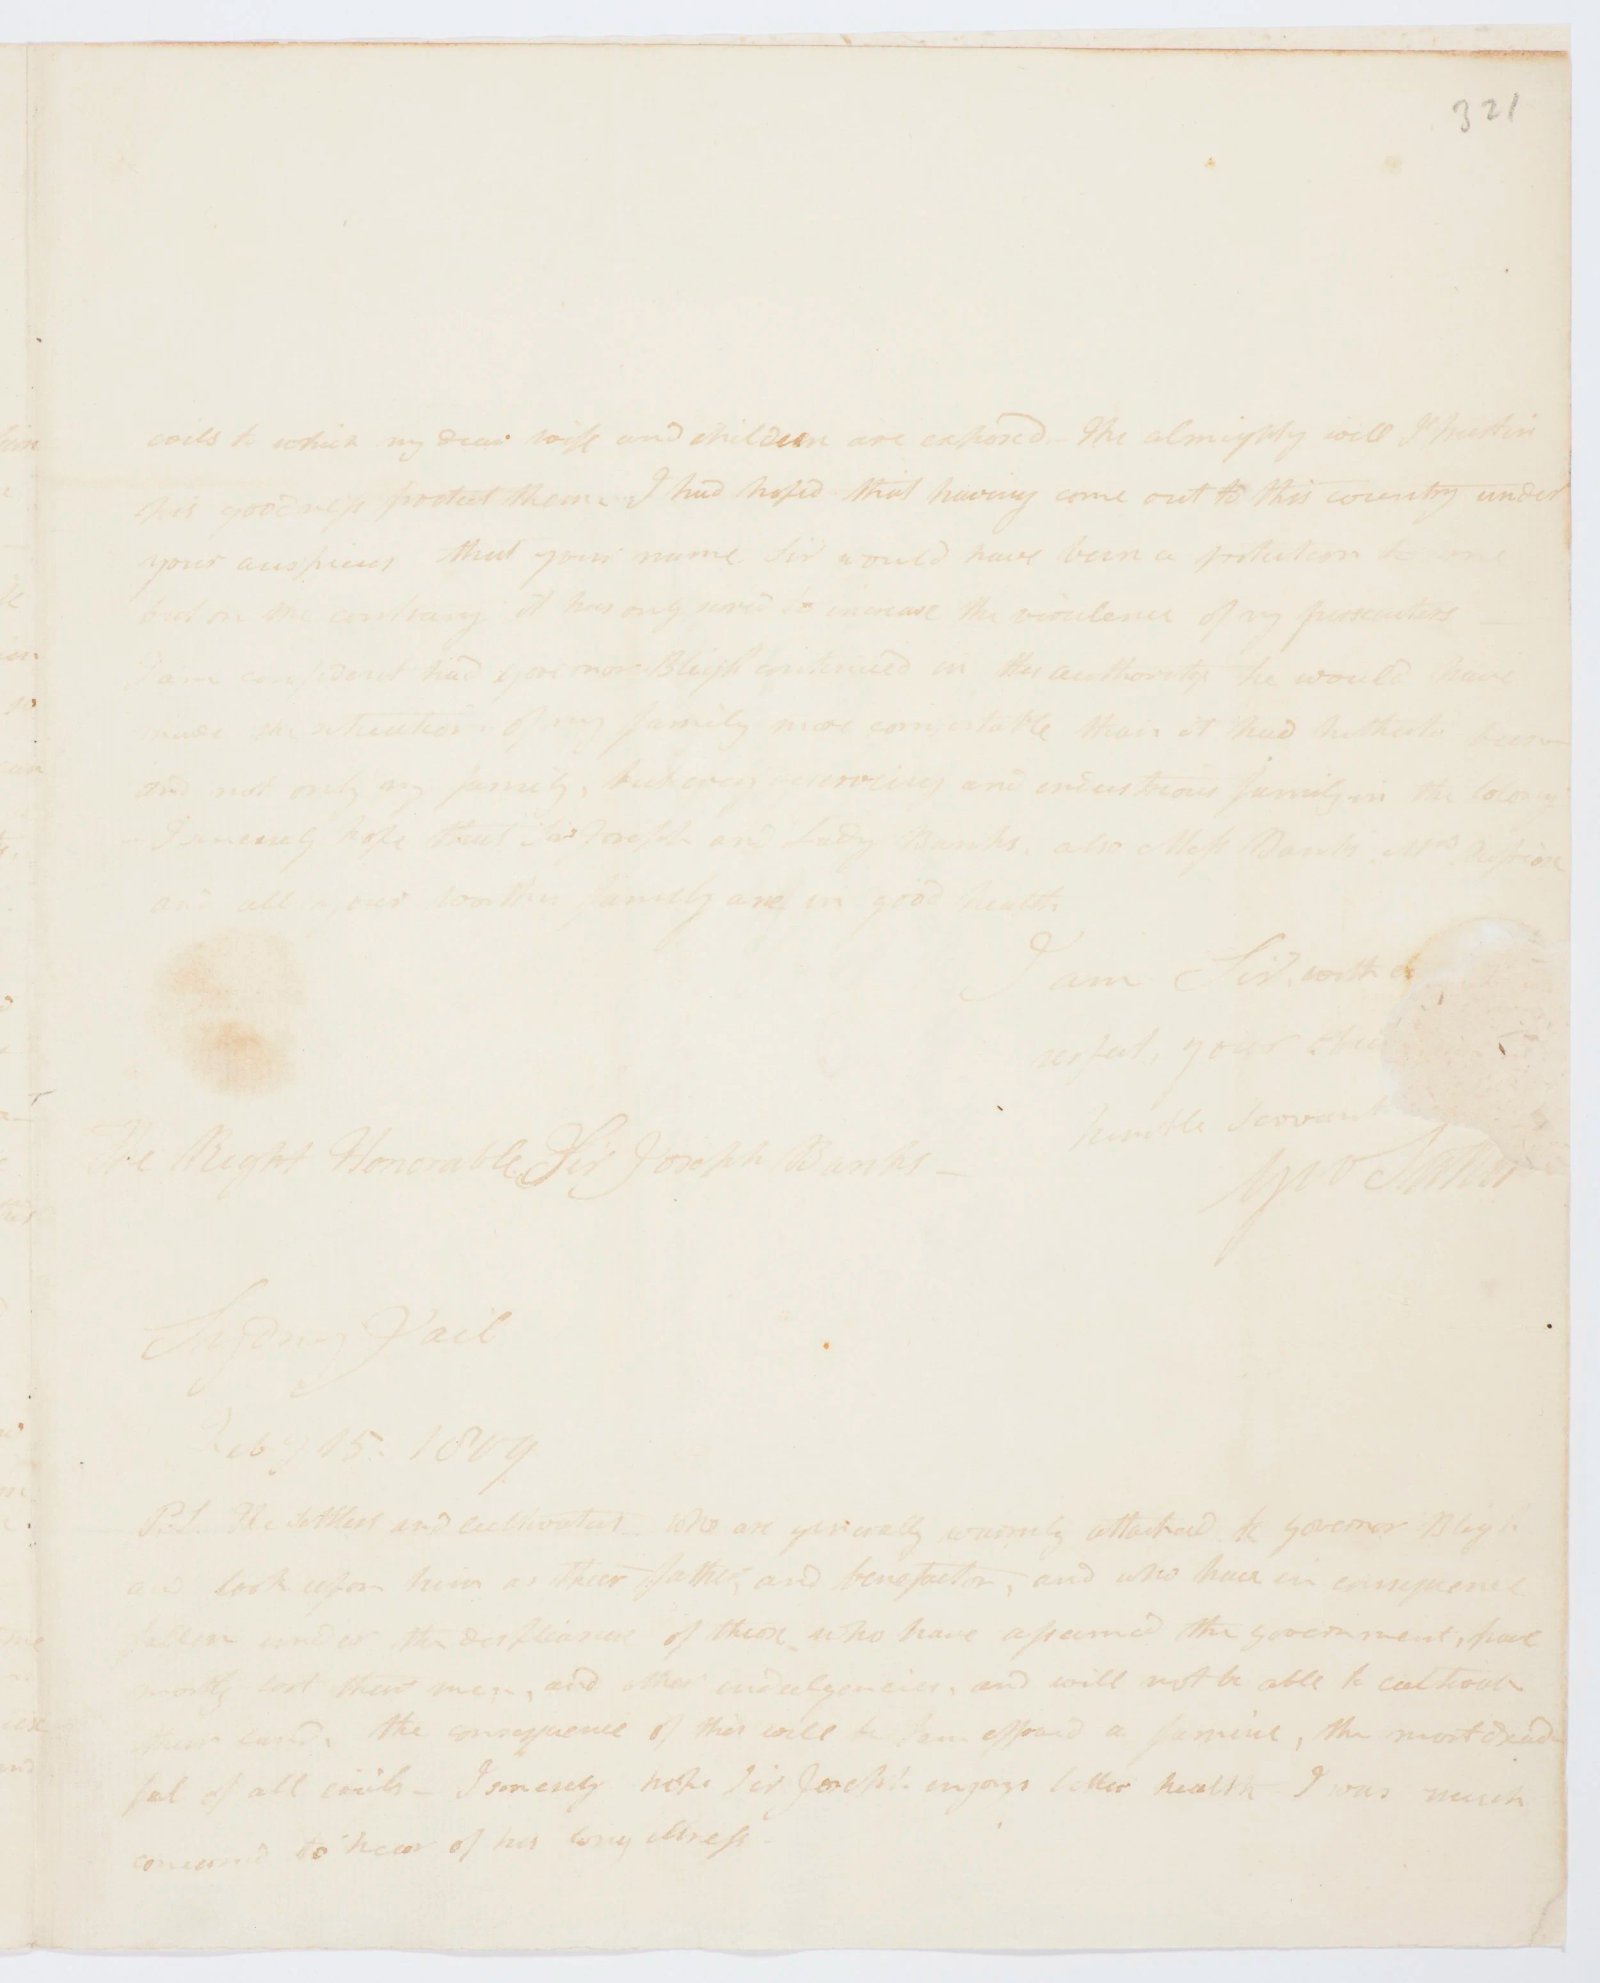 321
evils to which my dear wife and children are exposed – The almighty will I trust in
his goodness protect them – I had hoped that having come out to this country under
your auspices that your name Sir would have been a protection to me
but on the contrary it has only served to increase the virulence of my persecutors –
I am confident had governor Bligh continued in his authority he would have
made the situation of my family more comfortable than it had hitherto been
and not only my family, but every deserving and industrious family in the Colony
I sincerely hope that Sir Joseph and Lady Banks, also Mrss Banks
and all your worthy family are in good health
I am Sir, with
respect, your
humble servant
The Right Honorable Sir Joseph Banks –
Geo Suttor
Sydney Jail
Feby 15. 1809
P.S. The settlers and cultivators who are generally warmly attached to governor Bligh
and look upon him as their father, and benefactor, and who have in consequence
fallen under the displeasure of those who have assumed the government, have
mostly lost their men, and other indulgencies, and will not be able to cultivate
their land, the consequence of this will be I am affraid a famine, the most dread
ful of all evils – I sincerely hope Sir Joseph enjoys better health I was much
concerned to hear of his long illness –